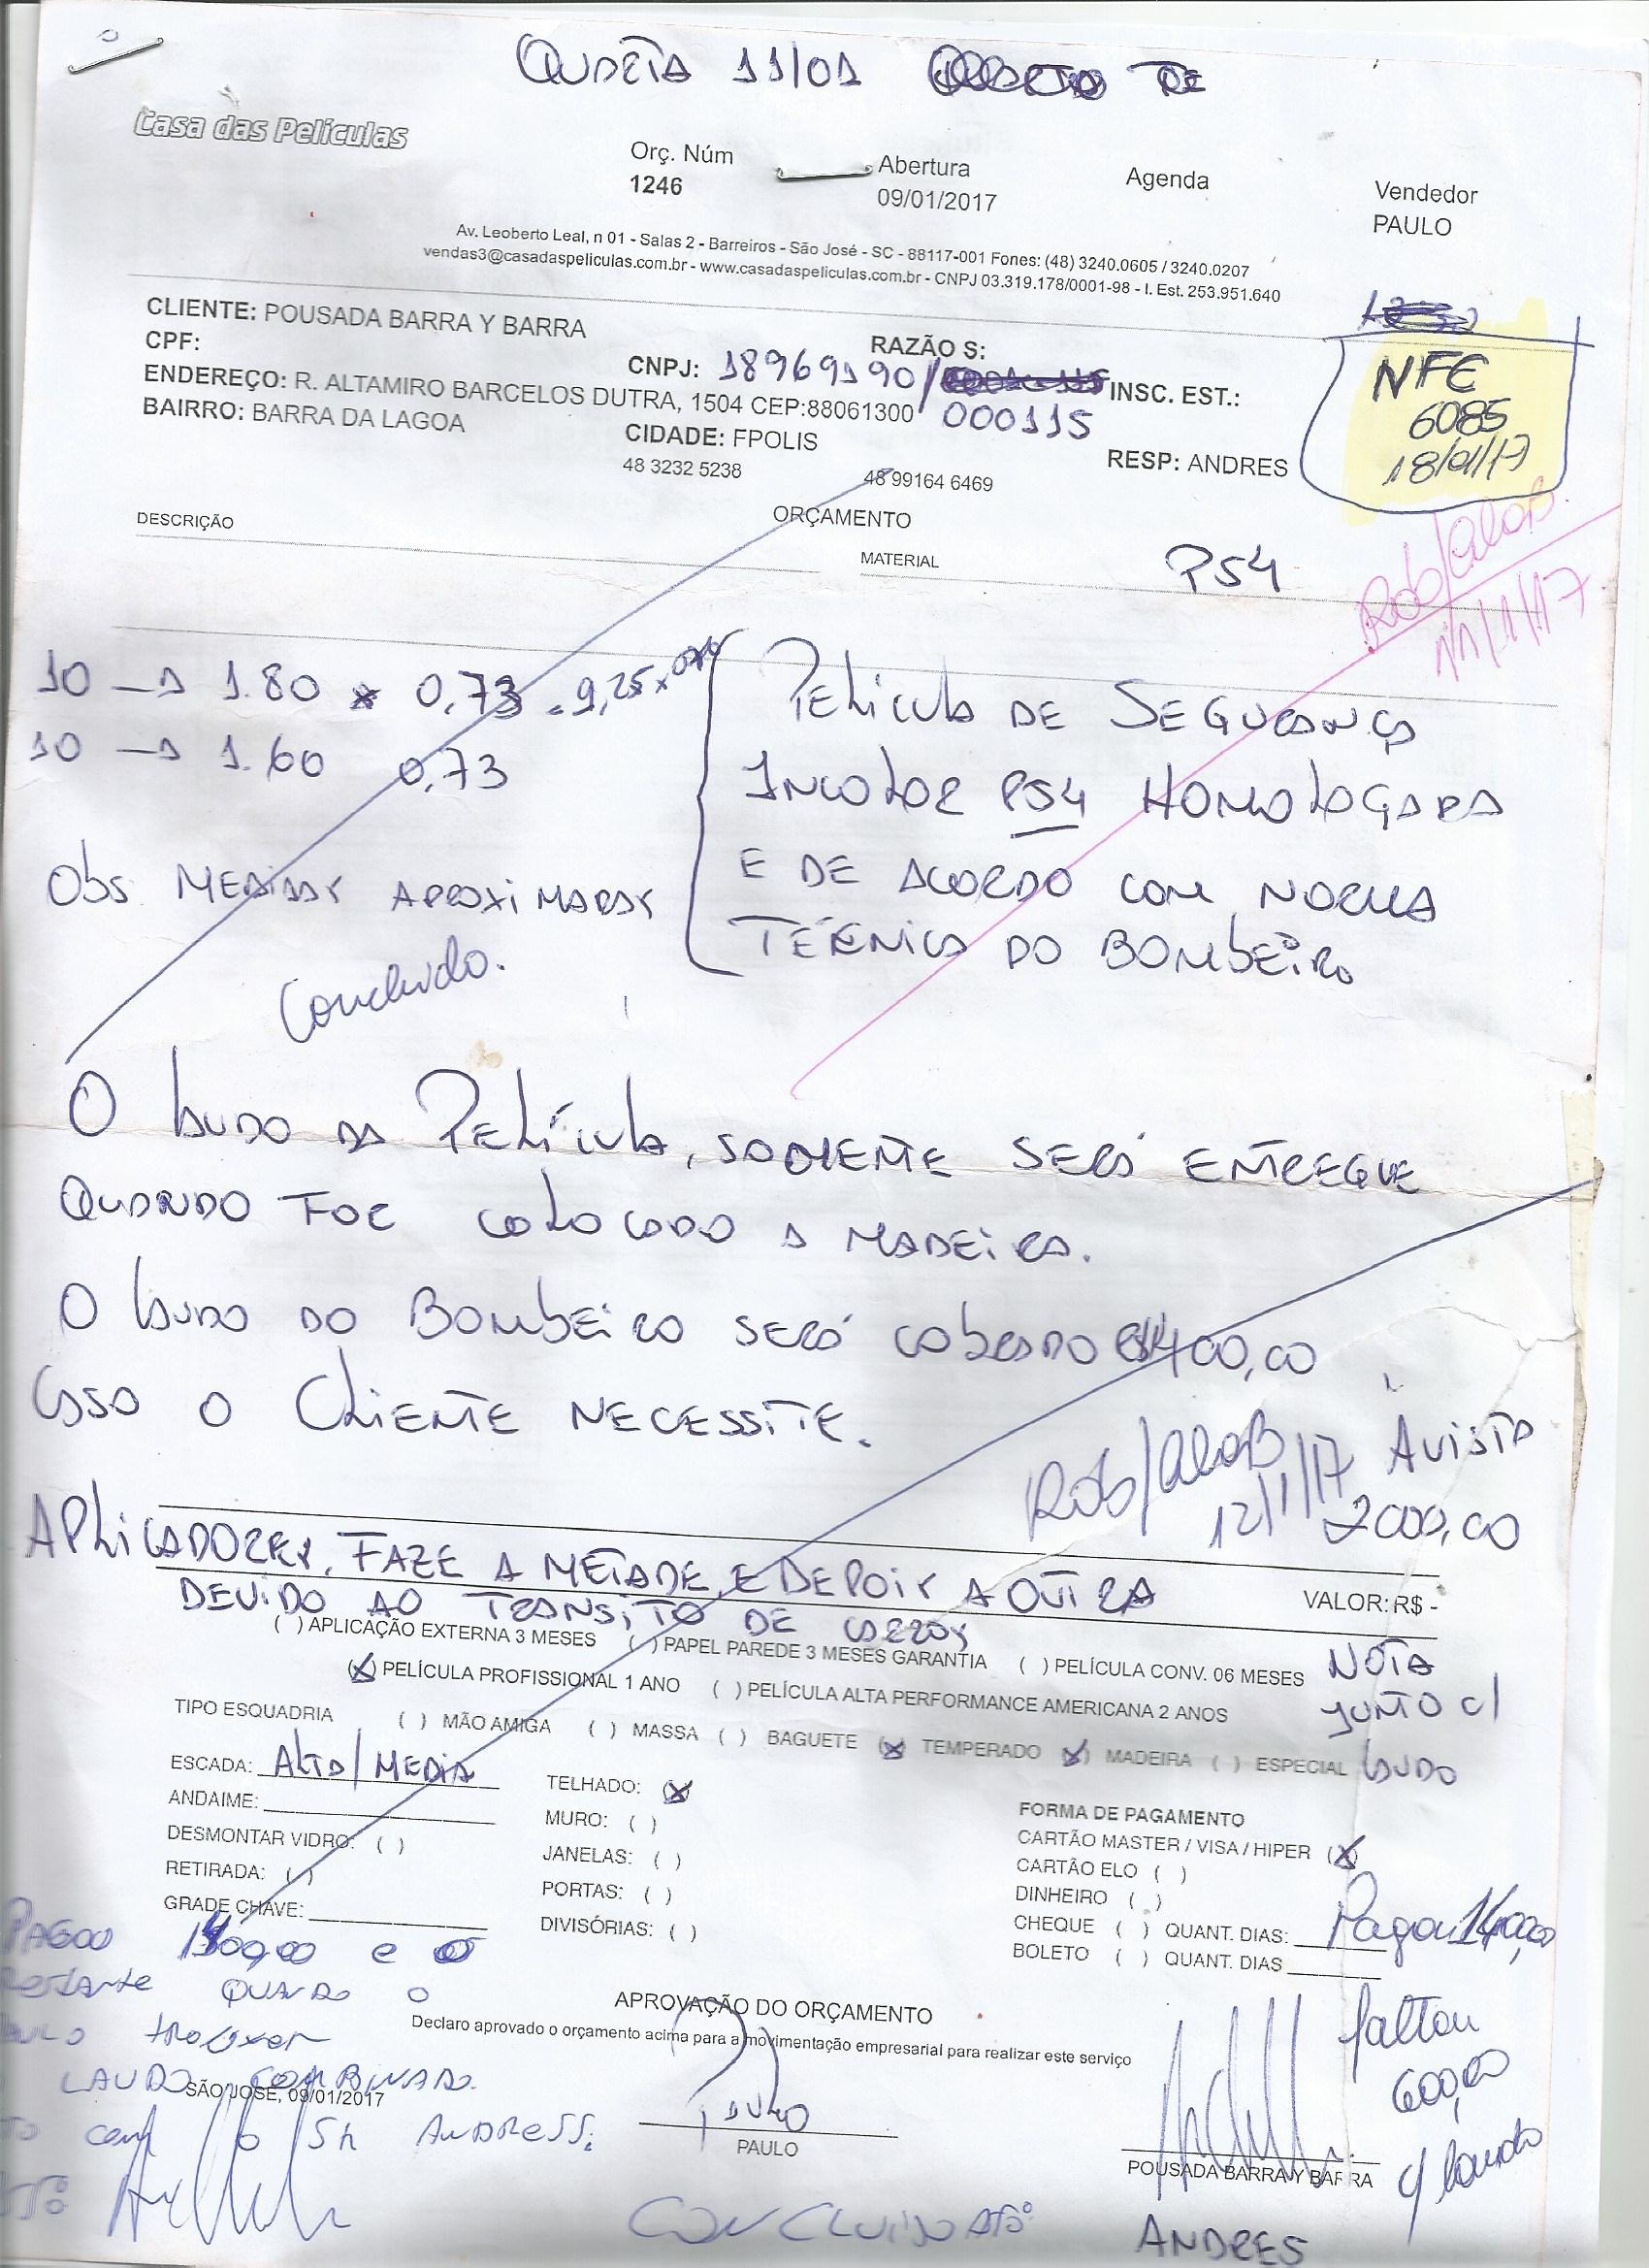 QUARTA 11/01
Casa das Películas
Orç. Núm
1246
Abertura
09/01/2017
Agenda
Vendedor
PAULO
Av. Leoberto Leal, n 01 - Salas 2 - Barreiros - São José - SC - 88117-001 Fones: (48) 3240.0605 / 3240.0207
vendas3@casadaspeliculas.com.br - www.casadaspeliculas.com.br - CNPJ 03.319.178/0001-98 - I. Est. 253.951.640
CLIENTE: POUSADA BARRA Y BARRA
RAZÃO S:
CPF:
CNPJ: 18969190/
000115
INSC. EST.:
ENDEREÇO: R. ALTAMIRO BARCELOS DUTRA, 1504 CEP:88061300
BAIRRO: BARRA DA LAGOA
CIDADE: FPOLIS
RESP: ANDRES
48 3232 5238
48 99164 6469
NFE
6085
18/01/17
ORÇAMENTO
DESCRIÇÃO
MATERIAL
PS4
Rob/
11/1/17
10 → 1.80 x 0,73
10 → 1.60 0,73
Obs MEDIDAS APROXIMADAS
Concluído.
PELICULA DE SEGURANÇA
INCOLOR PS4 HOMOLOGADA
E DE ACORDO COM NORMA
TÉCNICA DO BOMBEIRO
O LAUDO DA PELÍCULA, SOMENTE SERÁ ENTREGUE
QUANDO FOR COLOCADO A MADEIRA.
O LAUDO DO BOMBEIRO SERÁ COBRADO 400,00
CASO O CLIENTE NECESSITE.
Rob/
12/1/17
AVISTA
2000,00
APLICADORES, FAZE A METADE E DEPOIS A OUTRA
DEVIDO AO TRANSITO DE CARROS
VALOR: R$ -
( ) APLICAÇÃO EXTERNA 3 MESES ( ) PAPEL PAREDE 3 MESES GARANTIA ( ) PELÍCULA CONV. 06 MESES
(X) PELÍCULA PROFISSIONAL 1 ANO ( ) PELÍCULA ALTA PERFORMANCE AMERICANA 2 ANOS
NOTA
JUNTO C/
LAUDO
TIPO ESQUADRIA ( ) MÃO AMIGA ( ) MASSA ( ) BAGUETE (X) TEMPERADO (X) MADEIRA ( ) ESPECIAL
ESCADA: ALTA/MEDIA
TELHADO: (X)
ANDAIME:
MURO: ( )
DESMONTAR VIDRO: ( )
JANELAS: ( )
RETIRADA: ( )
PORTAS: ( )
GRADE CHAVE:
DIVISÓRIAS: ( )
FORMA DE PAGAMENTO
CARTÃO MASTER / VISA / HIPER (X)
CARTÃO ELO ( )
DINHEIRO ( )
CHEQUE ( ) QUANT. DIAS:
BOLETO ( ) QUANT. DIAS
Pagou 1400,00
faltou
600,00
c/ laudo
PAGOU 1400,00 e o
Restante QUANDO o
PAULO trouxer
LAUDO COMBINADO.
APROVAÇÃO DO ORÇAMENTO
Declaro aprovado o orçamento acima para a movimentação empresarial para realizar este serviço
SÃO JOSÉ, 09/01/2017
PAULO
PAULO
POUSADA BARRA Y BARRA
ANDRES
CONCLUIDO